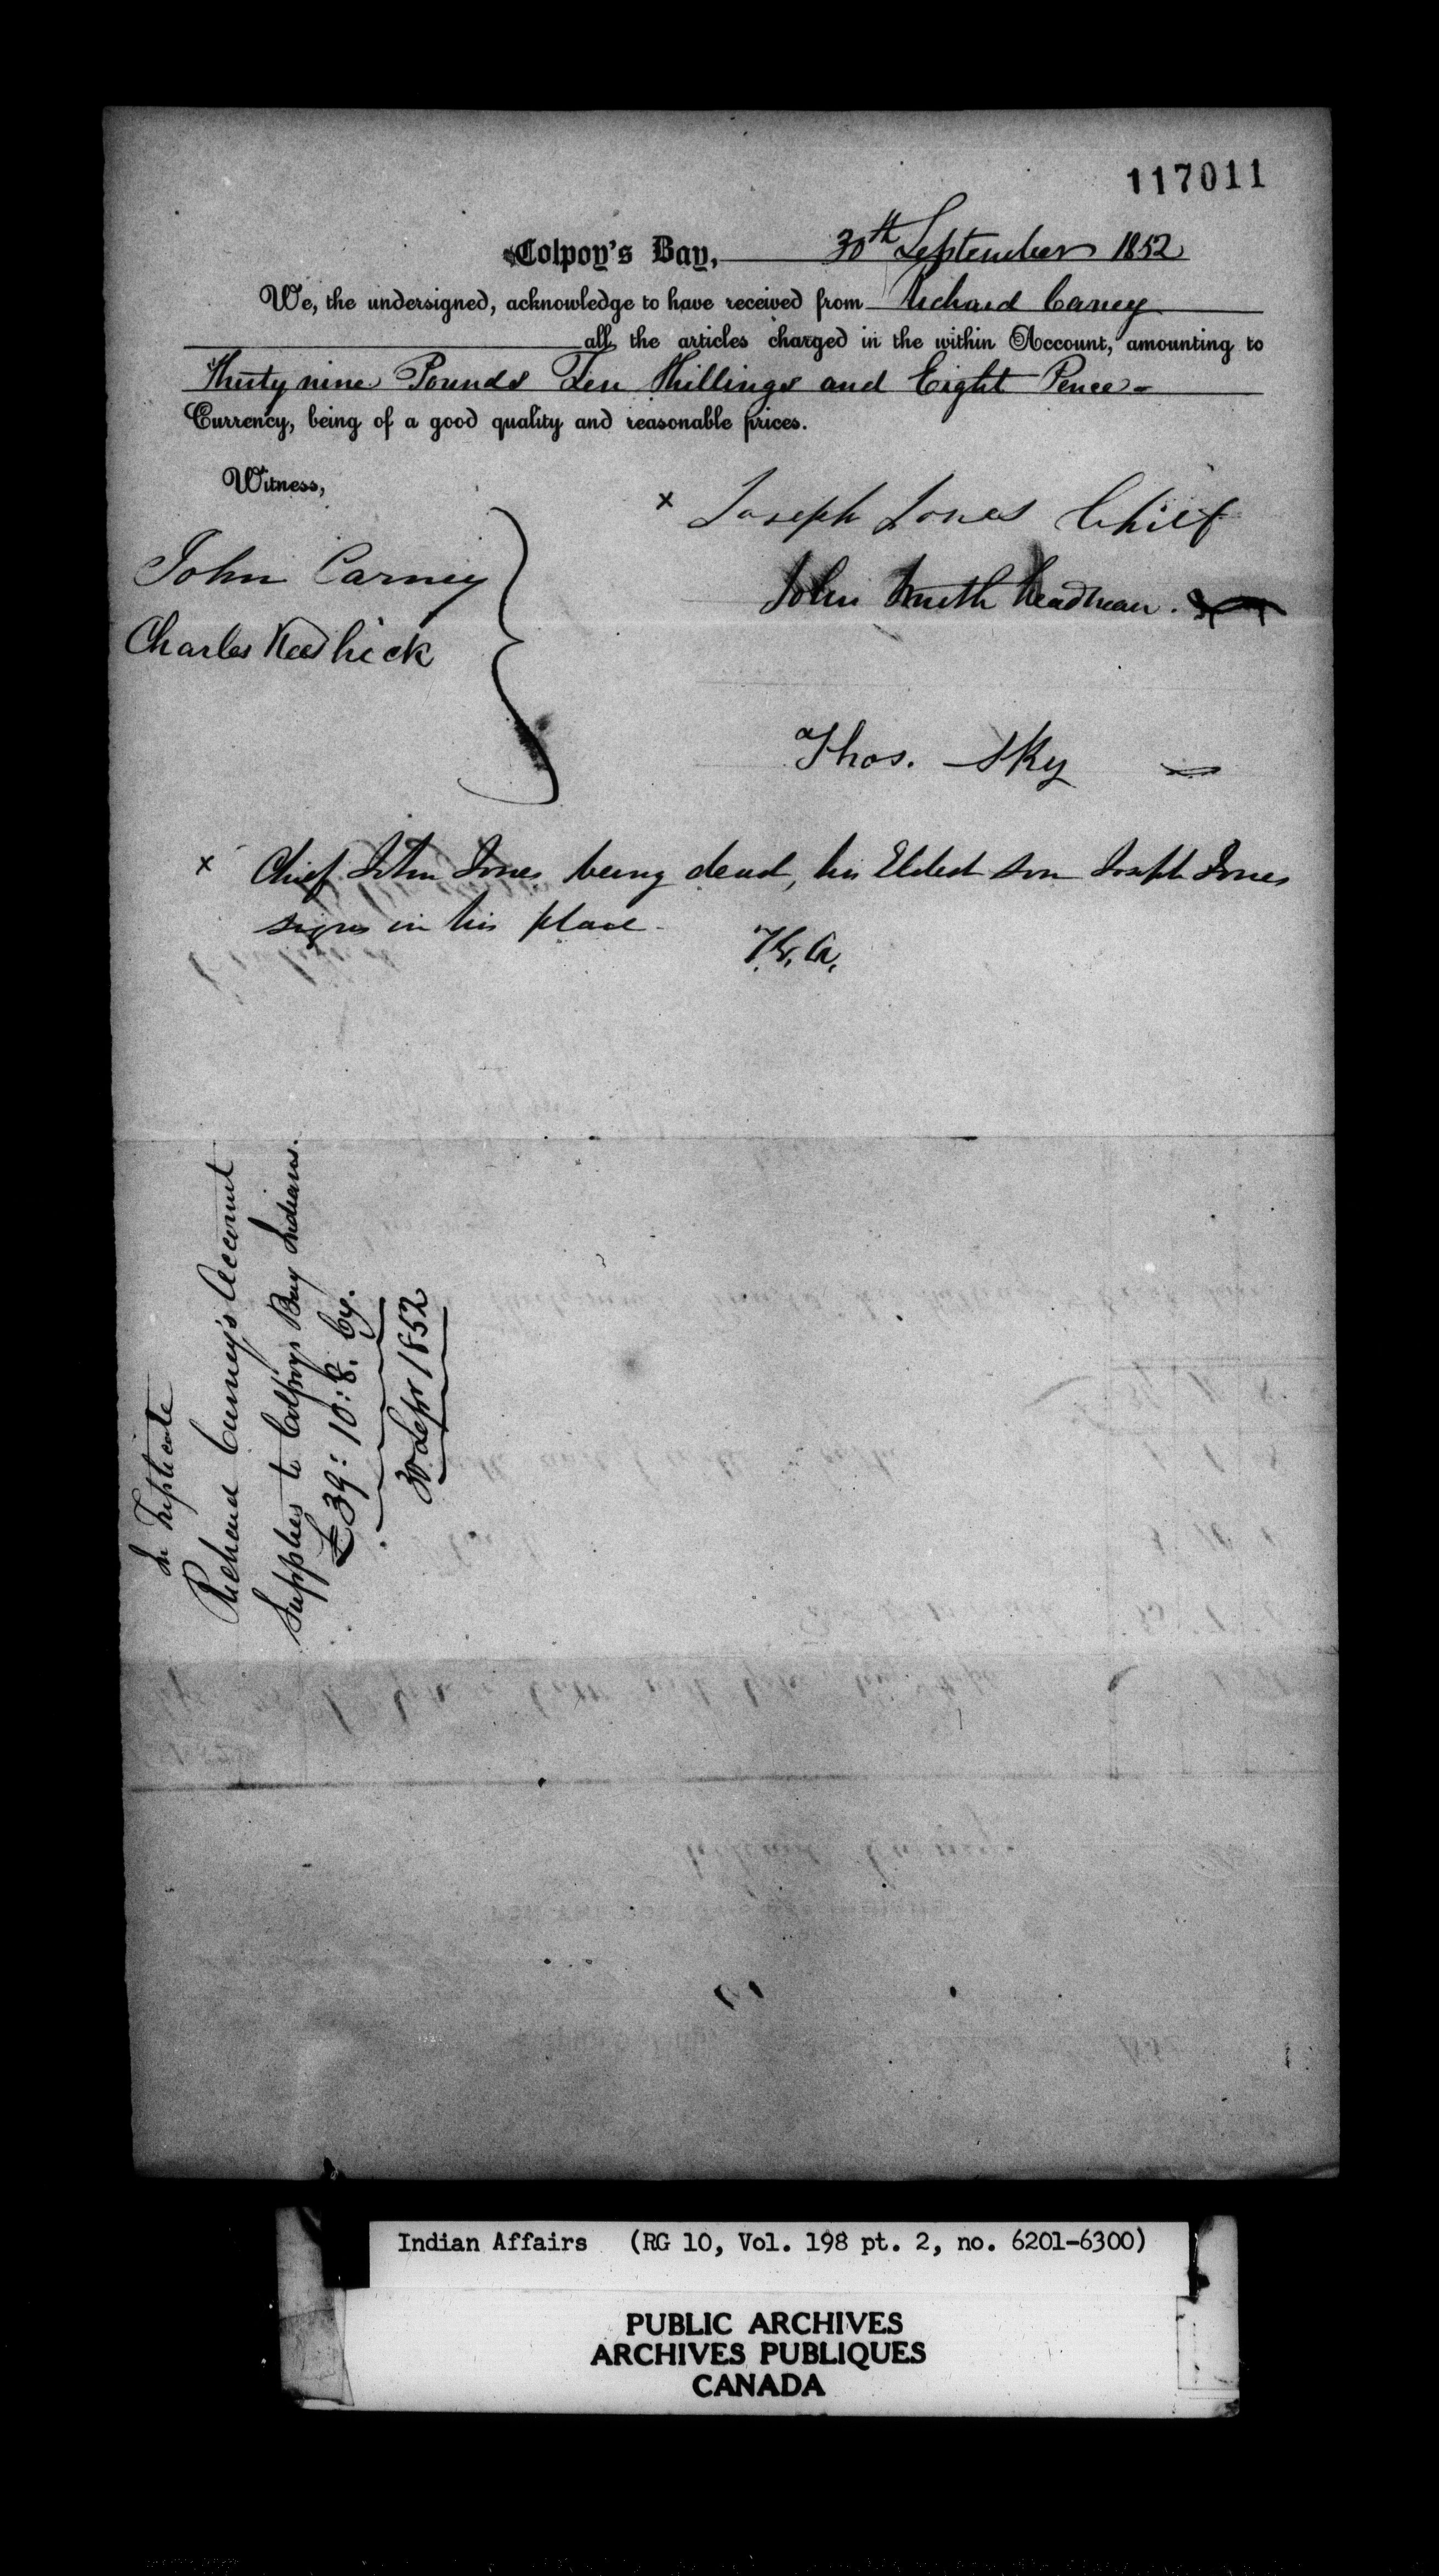 117011
Colpoy's Bay, 30th September 1852
We, the undersigned, acknowledge to have received from Richard Carney
all the articles charged in the within Account, amounting to
Thirty nine Pounds Ten Shillings and Eight Pence -
Currency, being of a good quality and reasonable prices.
Witness,
x Joseph Jones Chief
John Carney
John Smith headman.
Charles
Thos. Sky
x Chief John Jones being dead, his Eldest son Joseph Jones
signs in his place.
T.G.A.
In Triplicate
Richard Carney's Account
Supplies to Colpoys Bay Indians.
£39:10:8. Cy.
30 Sepr 1852
Indian Affairs (RG 10, Vol. 198 pt. 2, no. 6201-6300)
PUBLIC ARCHIVES
ARCHIVES PUBLIQUES
CANADA